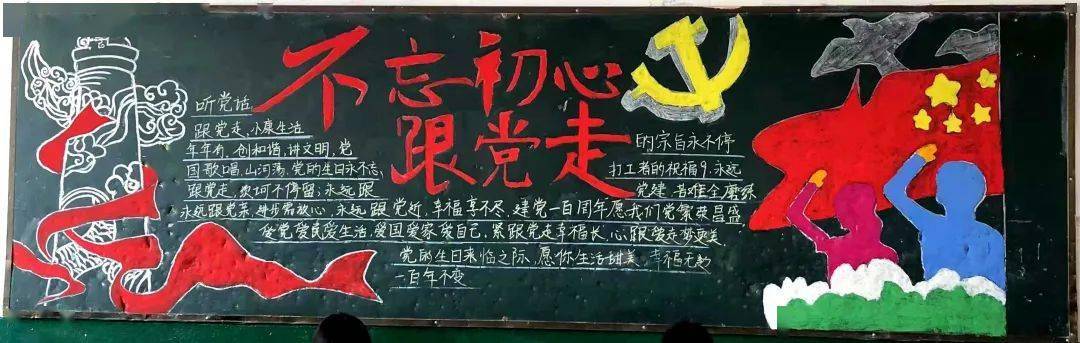 不忘初心
跟党走
听党话,
跟党走、小康生活
年年有,创和谐,讲文明,党
国歌唱,山河荡.党的生日永不忘,
跟党走,不停留;永远跟
的宗旨永不停
打工者的祝福9.永远
党建
永远跟党,永远跟党近,幸福享不尽,建党一百周年愿我们党繁荣昌盛
爱党爱民爱生活,爱国爱家爱自己,紧跟党走幸福长,心跟党走梦更美
党的生日来临之际,愿你生活甜美,幸福无
一百年不变